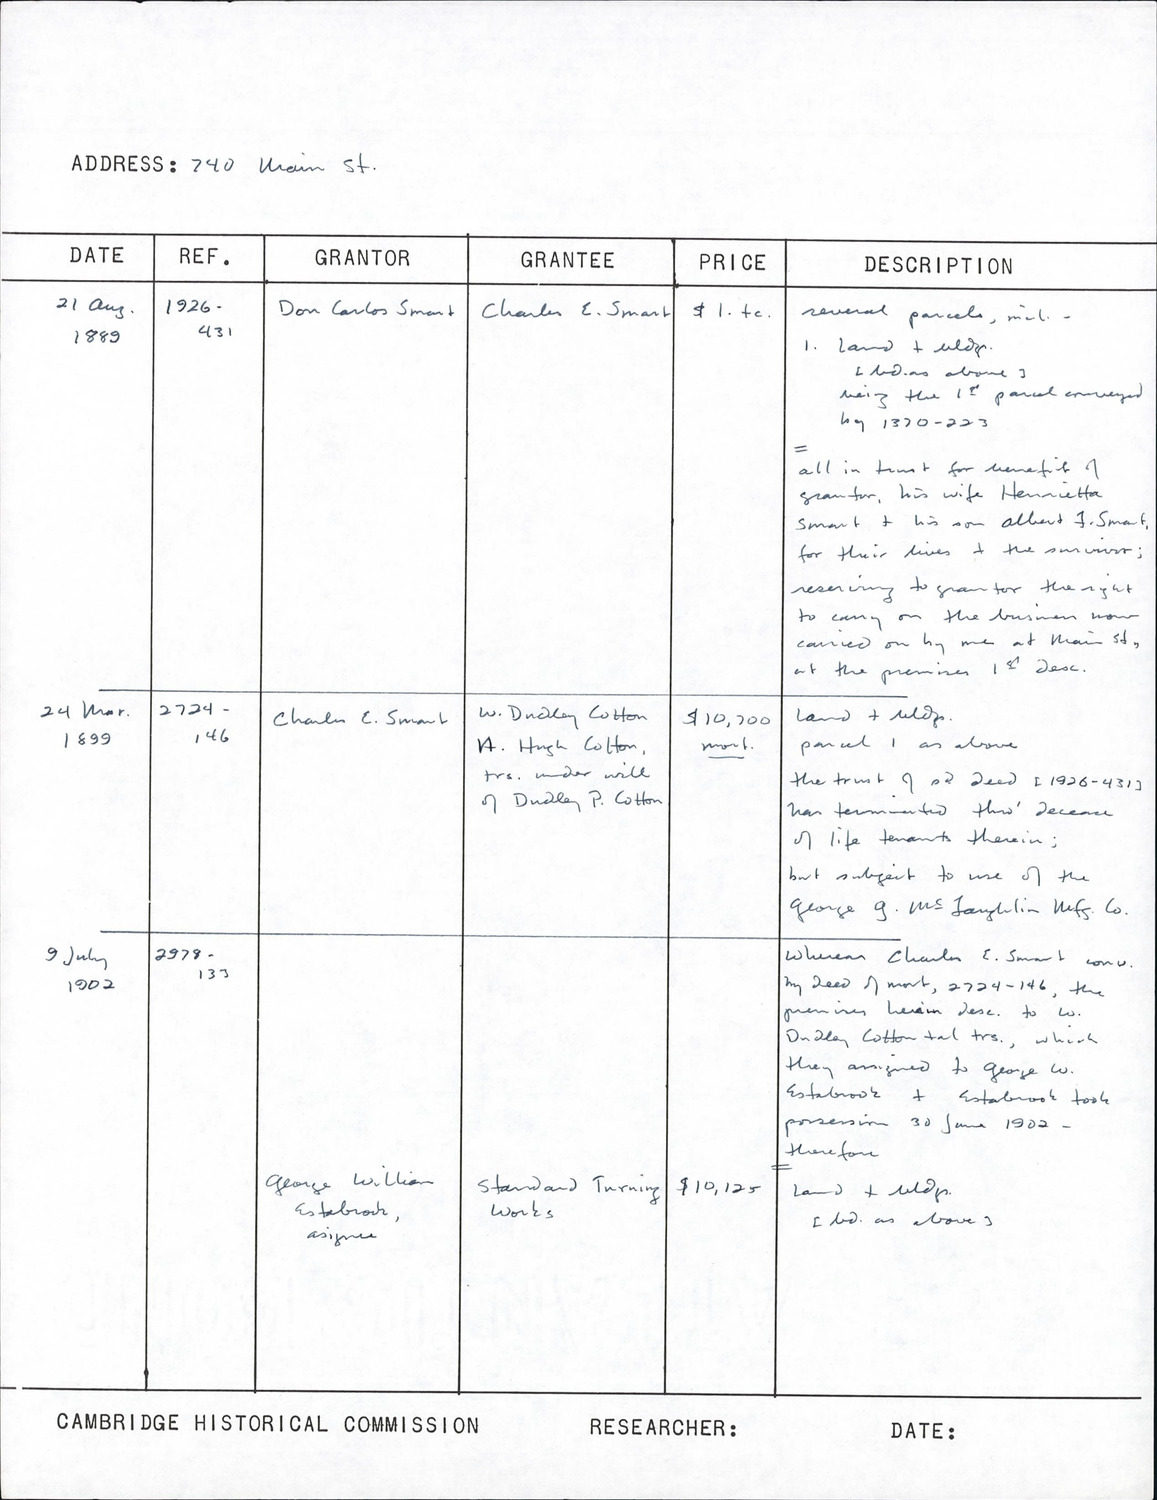 ADDRESS: 740 Main St.
DATE REF. GRANTOR GRANTEE PRICE DESCRIPTION
21 Aug. 1889
1926-431
Don Carlos Smart
Charles E. Smart
$1. tc.
several parcels, incl. -
1. Land + bldgs.
[bd. as above]
being the 1st parcel conveyed
by 1370-223
=
all in trust for benefit of
grantor, his wife Henrietta
Smart + his son Albert F. Smart,
for their lives + the survivor;
reserving to grantor the right
to carry on the business now
carried on by me at Main St.,
at the premises 1st desc.
24 Mar. 1899
2724-146
Charles E. Smart
W. Dudley Cotton
A. Hugh Cotton,
trs. under will
of Dudley P. Cotton
$10,700
mort.
Land + bldgs.
parcel 1 as above
the trust of sd deed [1926-431]
has terminated thro' decease
of life tenants therein;
but subject to use of the
George G. McLaughlin Mfg. Co.
9 July 1902
2978-133
Whereas Charles E. Smart conv.
by deed of mort, 2724-146, the
premises herein desc. to W.
Dudley Cotton tal trs., which
they assigned to George W.
Estabrook + Estabrook took
possession 30 June 1902 -
therefore
=
George William
Estabrook,
asignee
Standard Turning
Works
$10,125
Land + bldgs.
[bd. as above]
CAMBRIDGE HISTORICAL COMMISSION RESEARCHER: DATE: